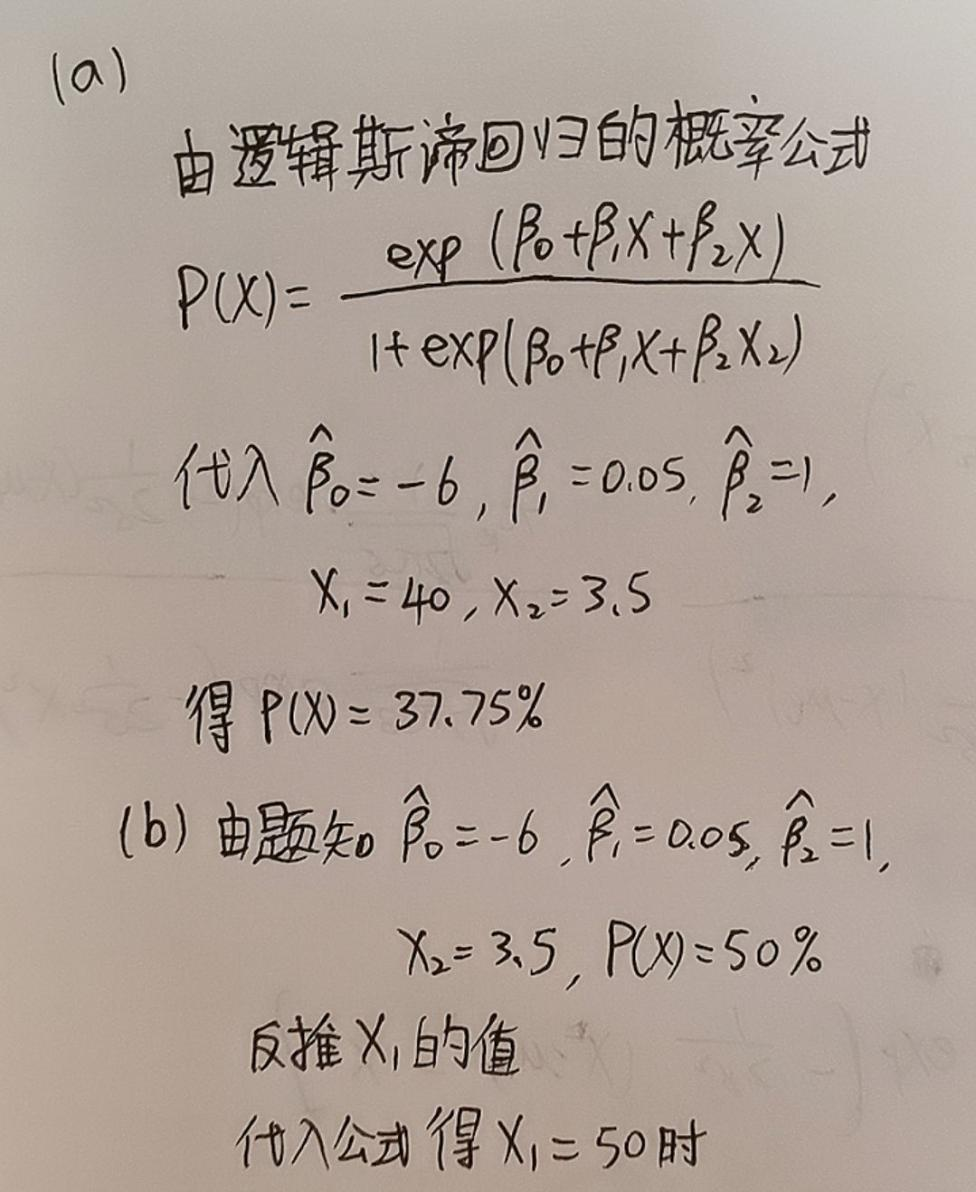 (a)
由逻辑斯谛回归的概率公式
P(X)= exp (β₀+β₁X+β₂X) / 1+exp(β₀+β₁X+β₂X₂)
代入 β̂₀=-6, β̂₁=0.05, β̂₂=1,
X₁=40, X₂=3.5
得 P(X)= 37.75%
(b) 由题知 β̂₀=-6, β̂₁=0.05, β̂₂=1,
X₂=3.5, P(X)=50%
反推X₁的值
代入公式得X₁=50时